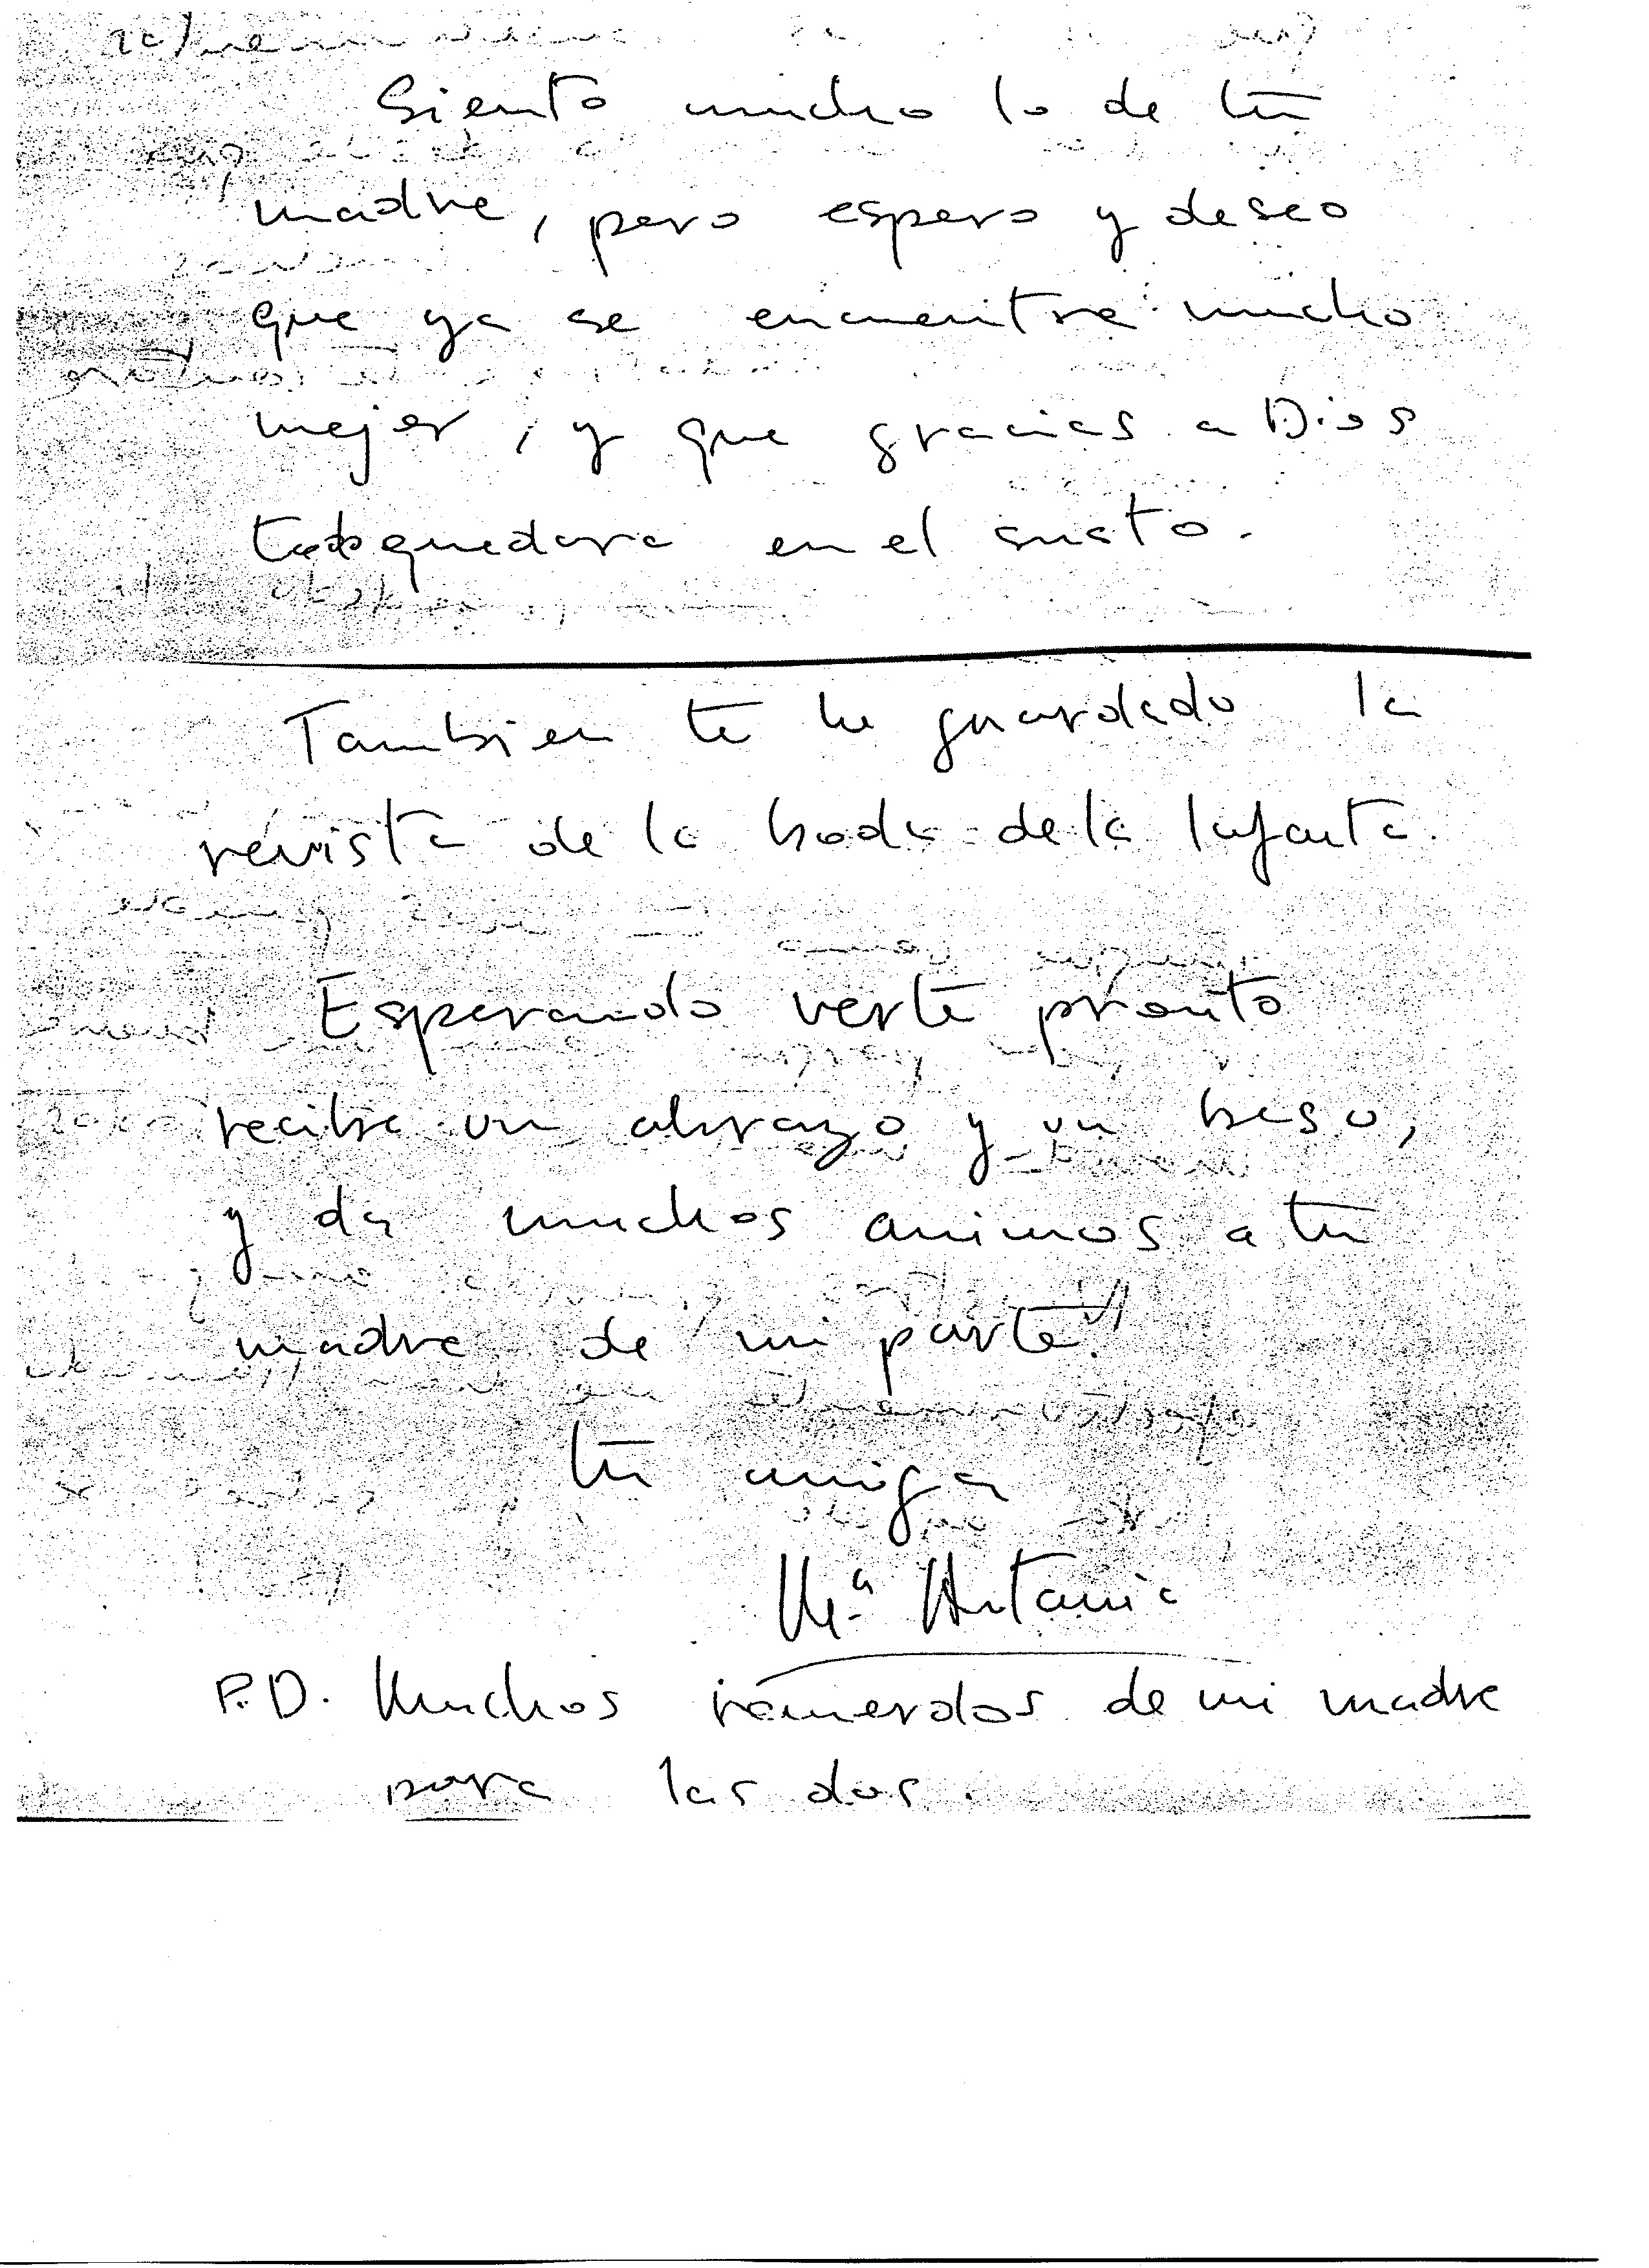 Siento mucho lo de tu
madre, pero espero y deseo
que ya se encuentre mucho
mejor, y que gracias a Dios
quedara en el susto.
Tambien te he guardado la
revista de la boda de la Infanta.
Esperando verte pronto
recibe un abrazo y un beso,
y da muchos animos a tu
madre de mi parte.
tu amiga
Mª Antonia
P.D. Muchos recuerdos de mi madre
para las dos.